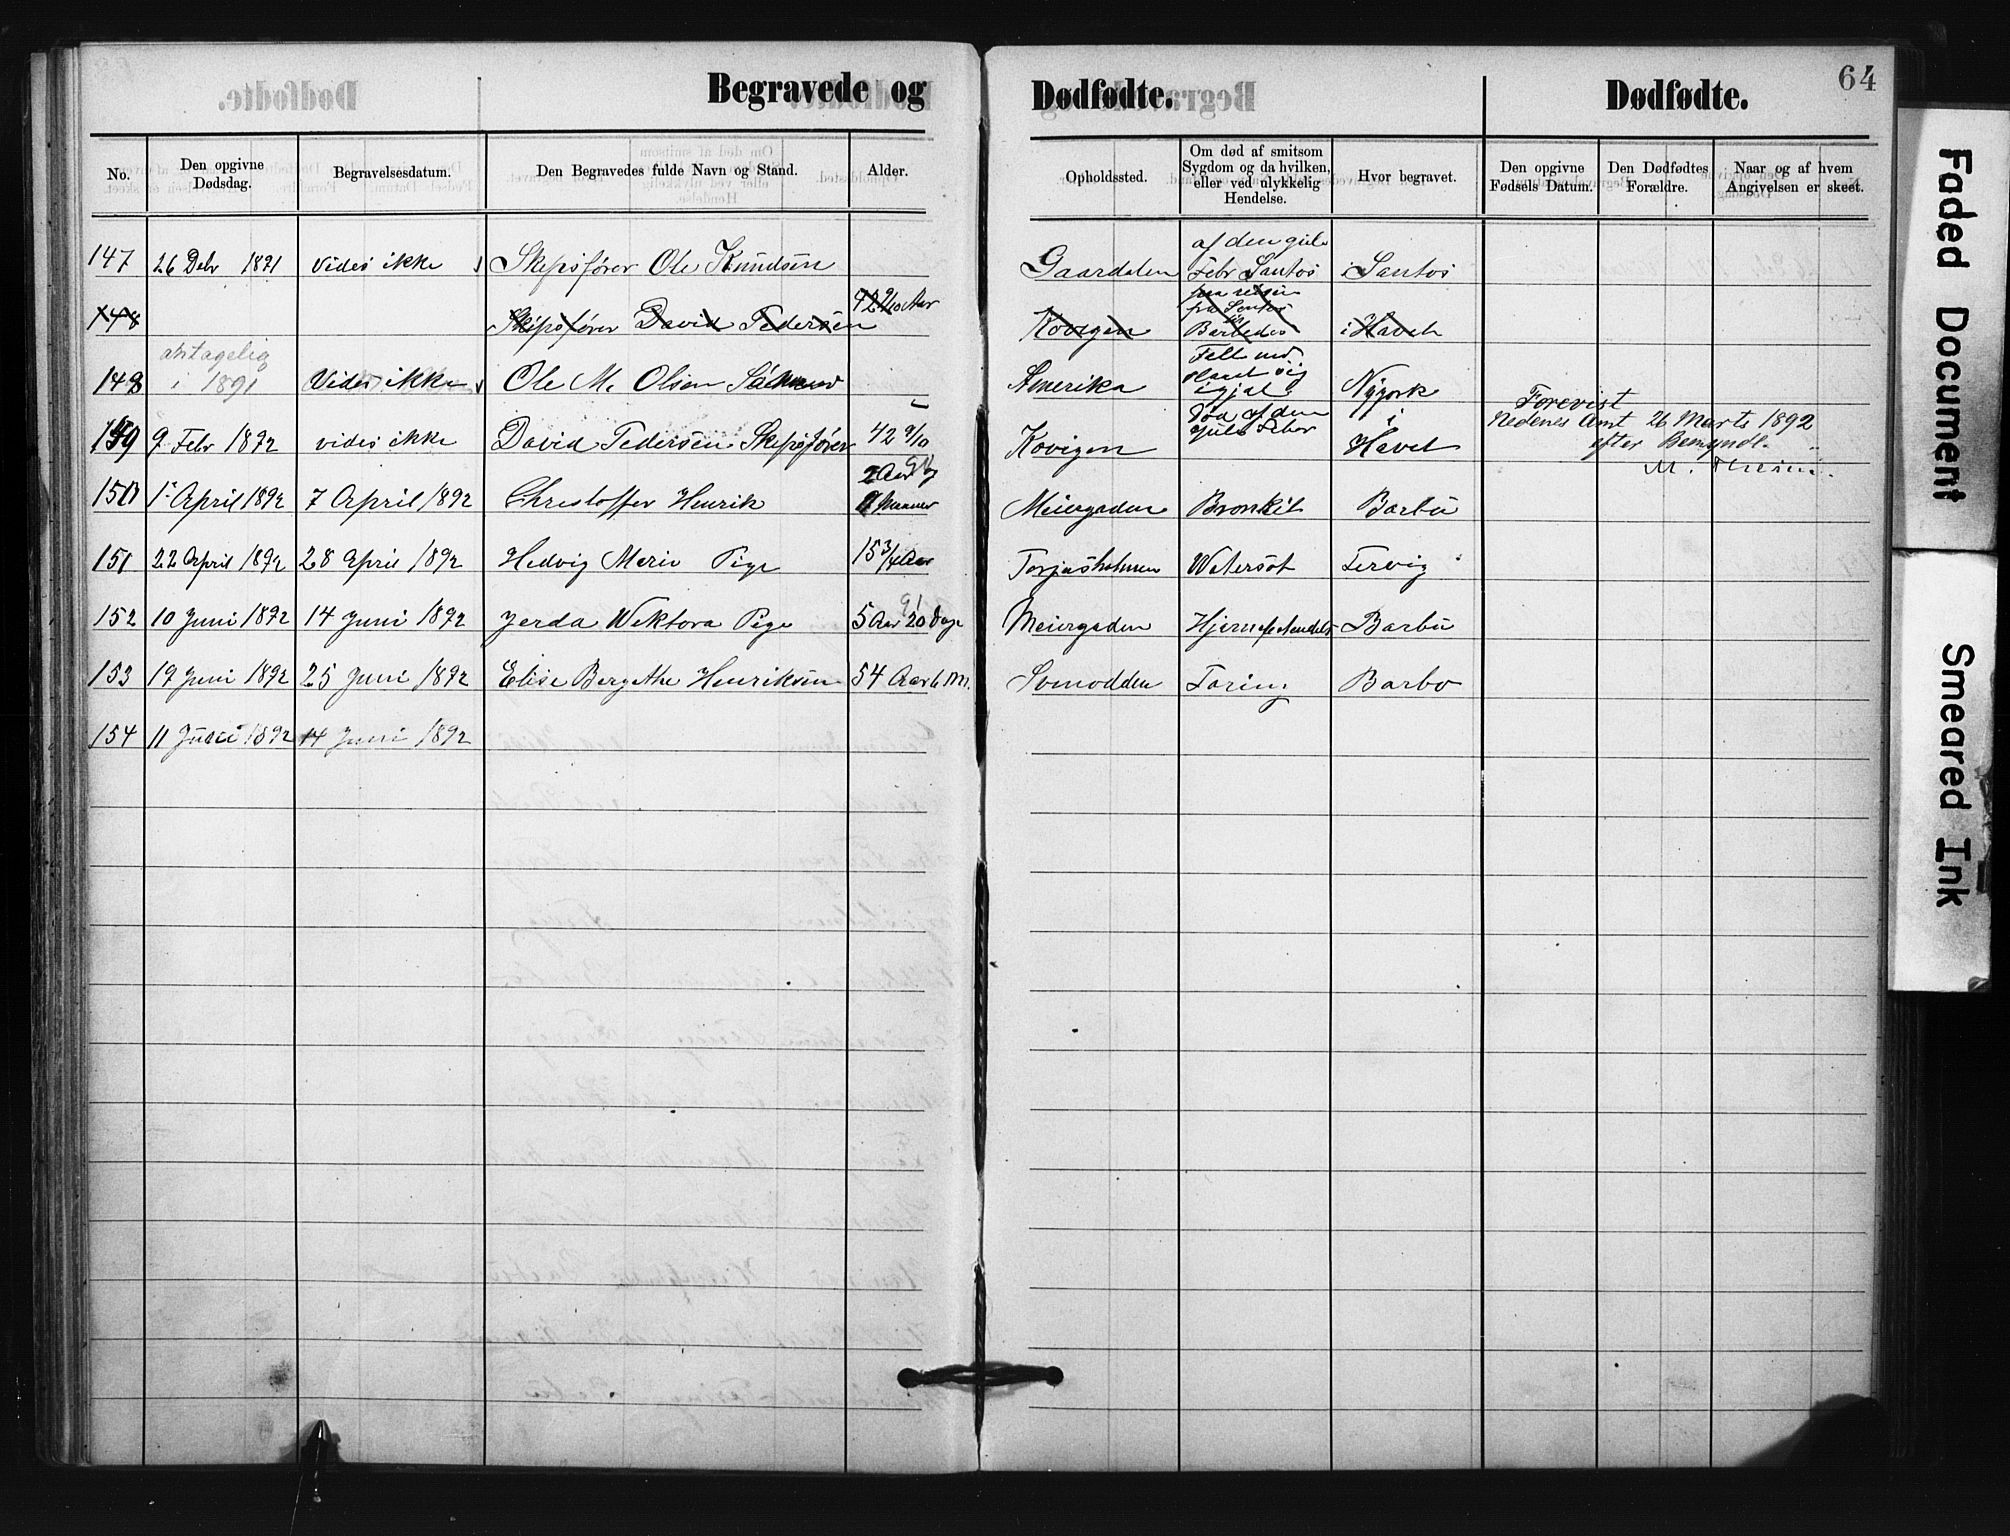 64
Begravede og Dødfødte. Dødfødte.
No. Den opgivne Dødsdag. Begravelsesdatum. Den Begravedes fulde Navn og Stand. Alder. Opholdssted. Om død af smitsom Sygdom og da hvilken, eller ved ulykkelig Hendelse. Hvor begravet. Den opgivne Fødsels Datum. Den Dødfødtes Forældre. Naar og af hvem Angivelsen er skeet.
af den gule
147 26 Debr 1891 vides ikke Skipsfører Ole Knudsen Gaardalen Febr Santos i Santos
paa reisen
fra Santos
148 Skipsfører David Pedersen 42 9/10 Aar Kovigen Barbedos i Havet
antagelig Felt ned
148 i 1891 Vides ikke Ole M. Olsen Sømand Amerika igjel Nÿyork
Død af den i Forevist
149 9 Febr 1892 vides ikke David Pedersen Skipsfører 42 9/10 Kovigen gule Feber Havet Nedenes Amt 26 Marts 1892
efter Bemyndl.
M.
2 Aar og
150 1 April 1892 7 April 1892 Christoffer Henrik Meiergaden Bronkit Barbu
151 22 April 1892 28 April 1892 Hedvig Marie Pige 15 3/4 Aar Torjusholmen Watersot Tervig
152 10 Juni 1892 14 Juni 1892 Jerda Wektora Pige 5 Aar 20 Dage Meiergaden Barbu
153 19 Juni 1892 25 Juni 1892 Elise Bergethe Henriksen 54 Aar 6 M. Somodden Tæring Barbo
154 11 Juni 1892 14 Juni 1892
Faded Document
Smeared Ink